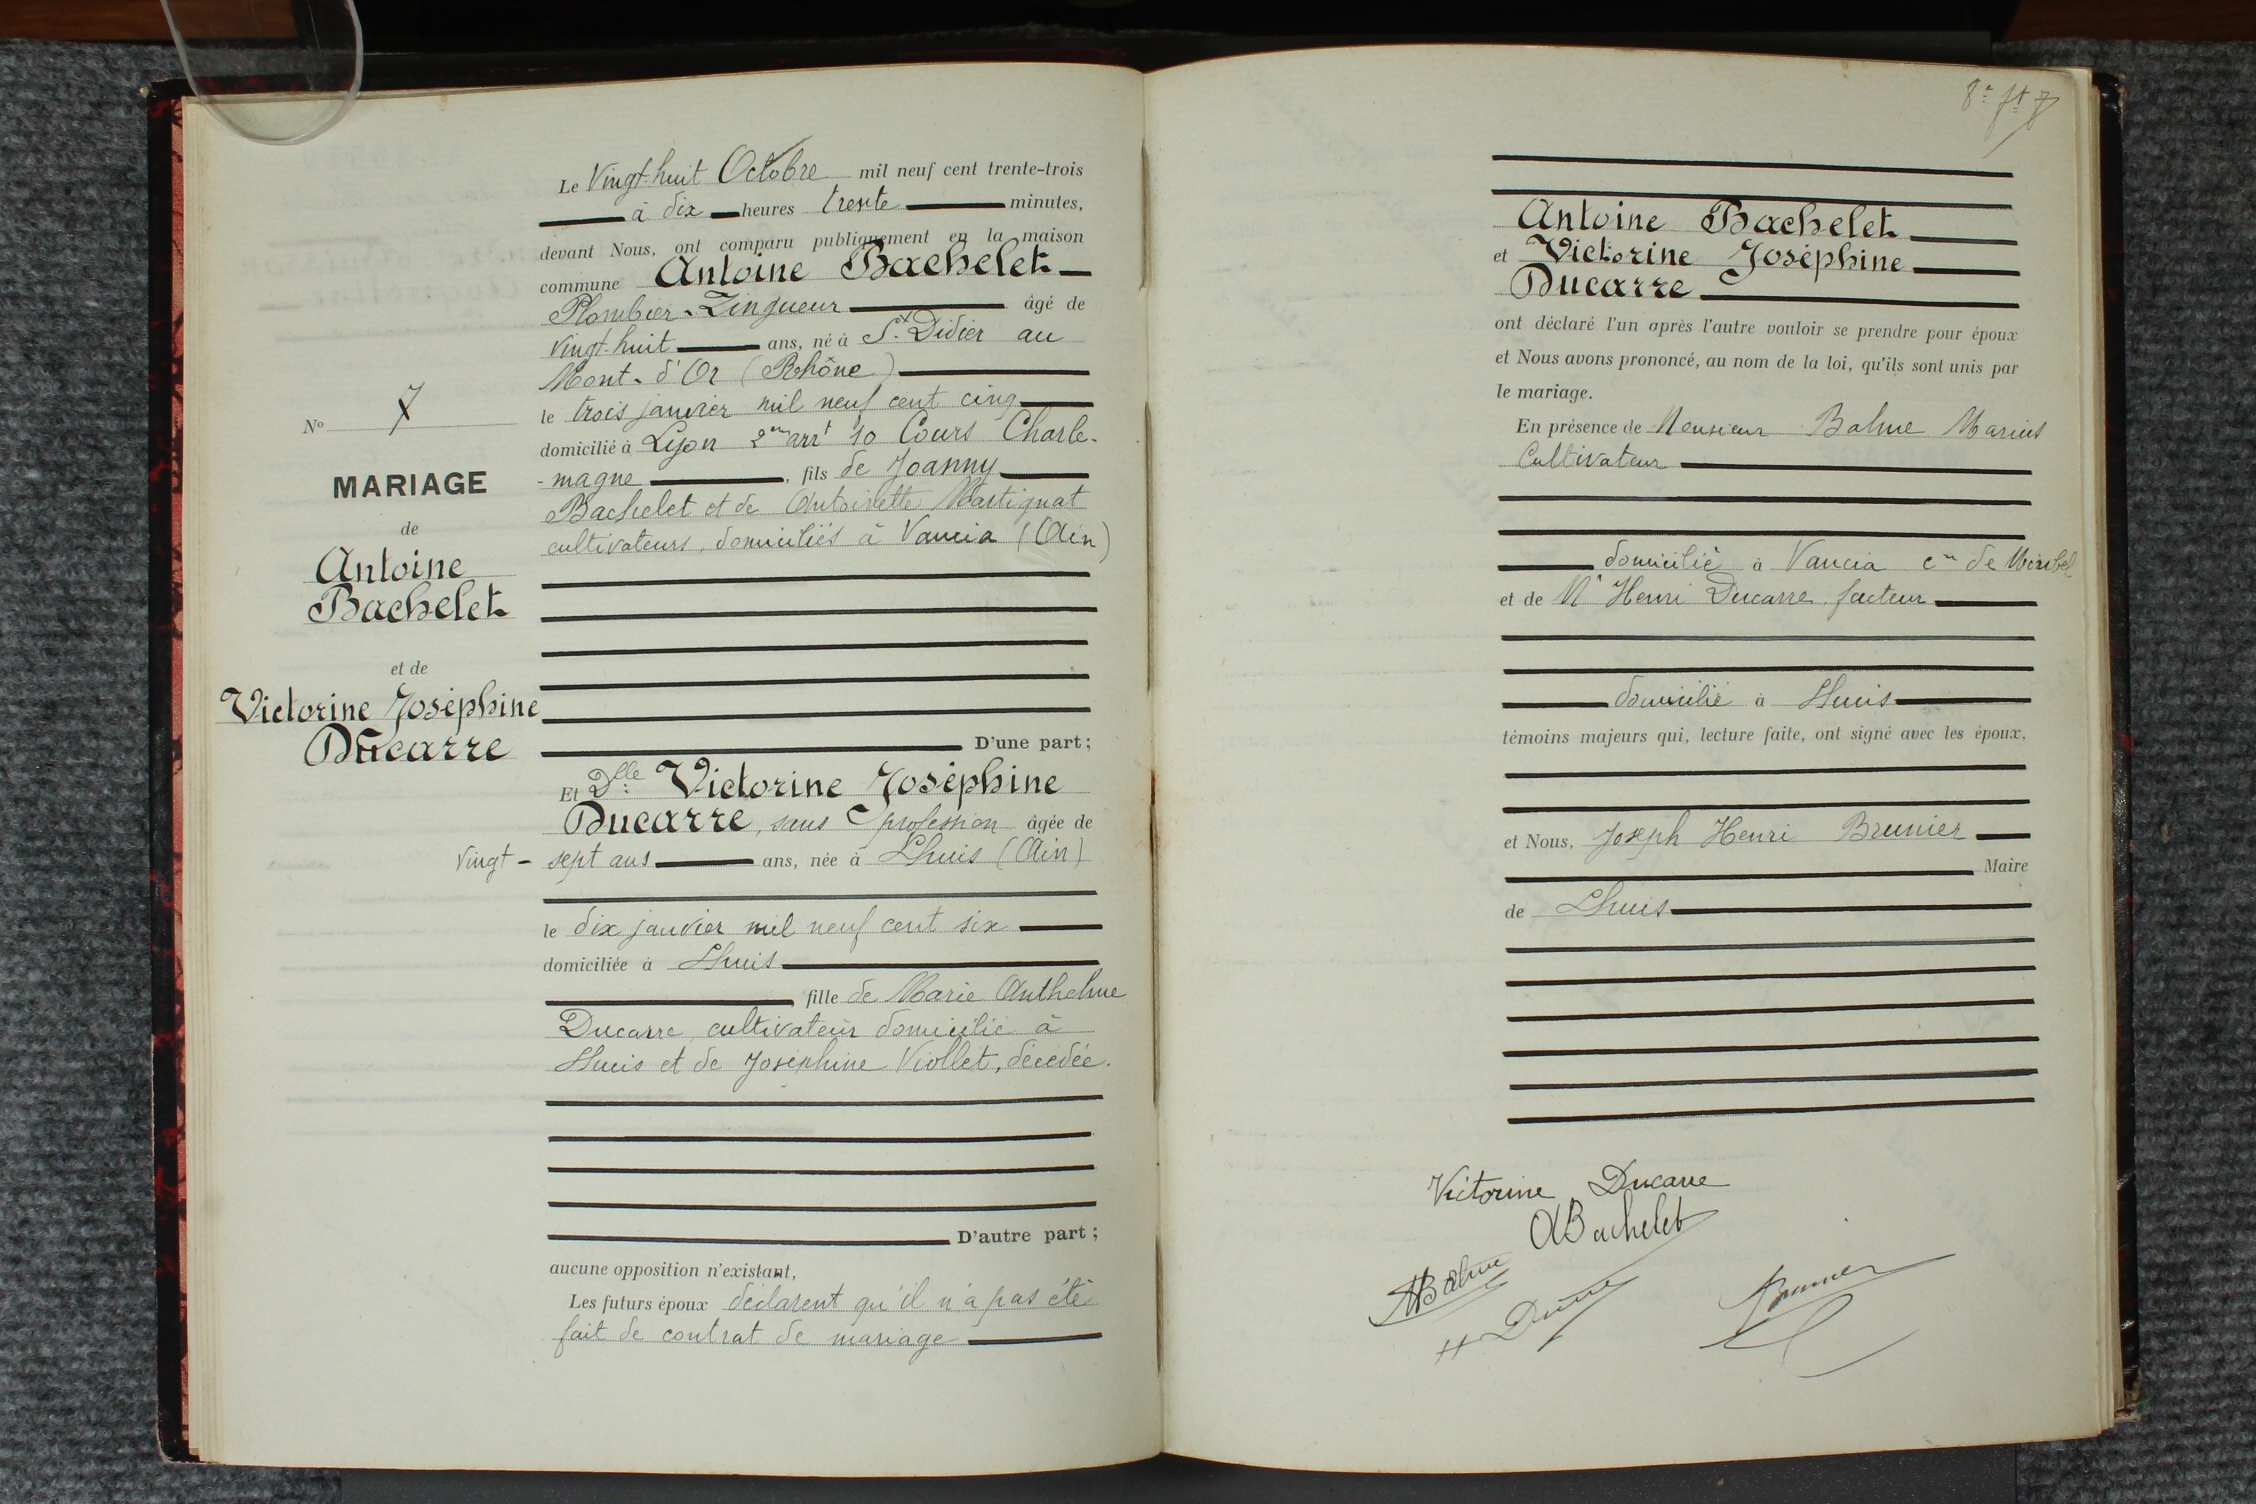 Le Vingt-huit Octobre mil neuf cent trente-trois
à dix heures trente minutes,
devant Nous, ont comparu publiquement en la maison
commune Antoine Bachelet
Plombier-Zingueur âgé de
vingt-huit ans, né à St Didier au
Mont-d'Or (Rhône)
le trois janvier mil neuf cent cinq
domicilié à Lyon 2me arrt 10 Cours Charle-
-magne, fils de Joanny
Bachelet et de Antoinette Martignat
cultivateurs, domiciliés à Vancia (Ain)
D'une part;
No 7
MARIAGE
de
Antoine
Bachelet
et de
Victorine Joséphine
Ducarre
Et Dlle Victorine Joséphine
Ducarre, sans profession âgée de
Vingt-sept ans ans, née à Lhuis (Ain)
le dix janvier mil neuf cent six
domiciliée à Lhuis
fille de Marie Anthelme
Ducarre, cultivateur domicilié à
Lhuis et de Joséphine Viollet, décédée.
D'autre part;
aucune opposition n'existant,
Les futurs époux déclarent qu'il n'a pas été
fait de contrat de mariage
8e ft
Antoine Bachelet
et Victorine Joséphine
Ducarre
ont déclaré l'un après l'autre vouloir se prendre pour époux
et Nous avons prononcé, au nom de la loi, qu'ils sont unis par
le mariage.
En présence de Monsieur Balme Marius
Cultivateur
domicilié à Vancia cne de Miribel
et de Mr Henri Ducarre, facteur
domicilié à Lhuis
témoins majeurs qui, lecture faite, ont signé avec les époux.
et Nous, Joseph Henri Brunier
Maire
de Lhuis
Victorine Ducarre
A Bachelet
M Balme
H Ducarre
Brunier